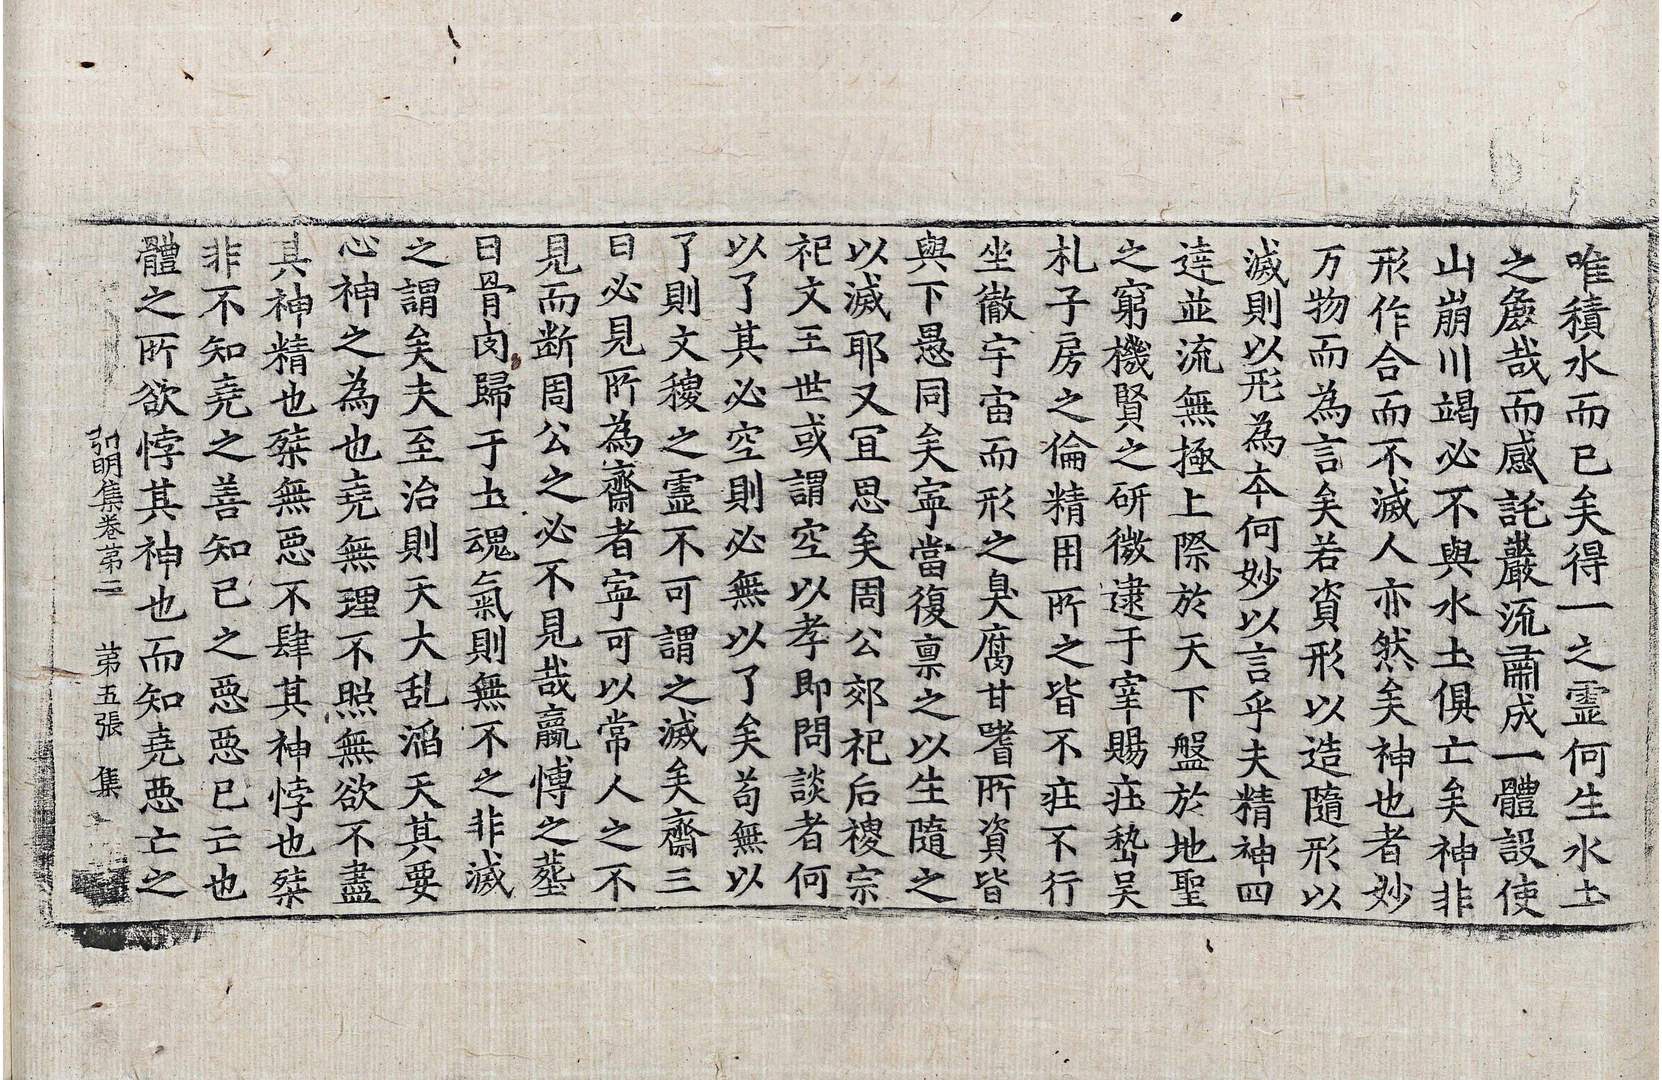 唯積水而已矣得一之霊何生水土
之麁哉而感託巖流肅成一體設使
山崩川竭必不與水土俱亡矣神非
形作合而不滅人亦然矣神也者妙
万物而為言矣若資形以造隨形以
滅則以形為本何妙以言乎夫精神四
達並流無極上際於天下盤於地聖
之窮機賢之研微逮于宰賜疰嵆吴
札子房之倫精用所之皆不疰不行
坐徹宇宙而形之臭腐甘嗜所資皆
與下愚同矣寧當復禀之以生隨之
以滅耶又冝思矣周公郊祀后稷宗
祀文王世或謂空以孝即問談者何
以了其必空則必無以了矣苟無以
了則文稷之霊不可謂之滅矣齋三
日必見所為齋者寧可以常人之不
見而断周公之必不見哉嬴愽之葬
曰骨肉歸于土魂氣則無不之非滅
之謂矣夫至治則天大乱滔天其要
心神之為也堯無理不照無欲不盡
其神精也桀無惡不肆其神悖也桀
非不知堯之善知已之惡惡已亡也
體之所欲悖其神也而知堯惡亡之
弘明集卷第二 第五張 集